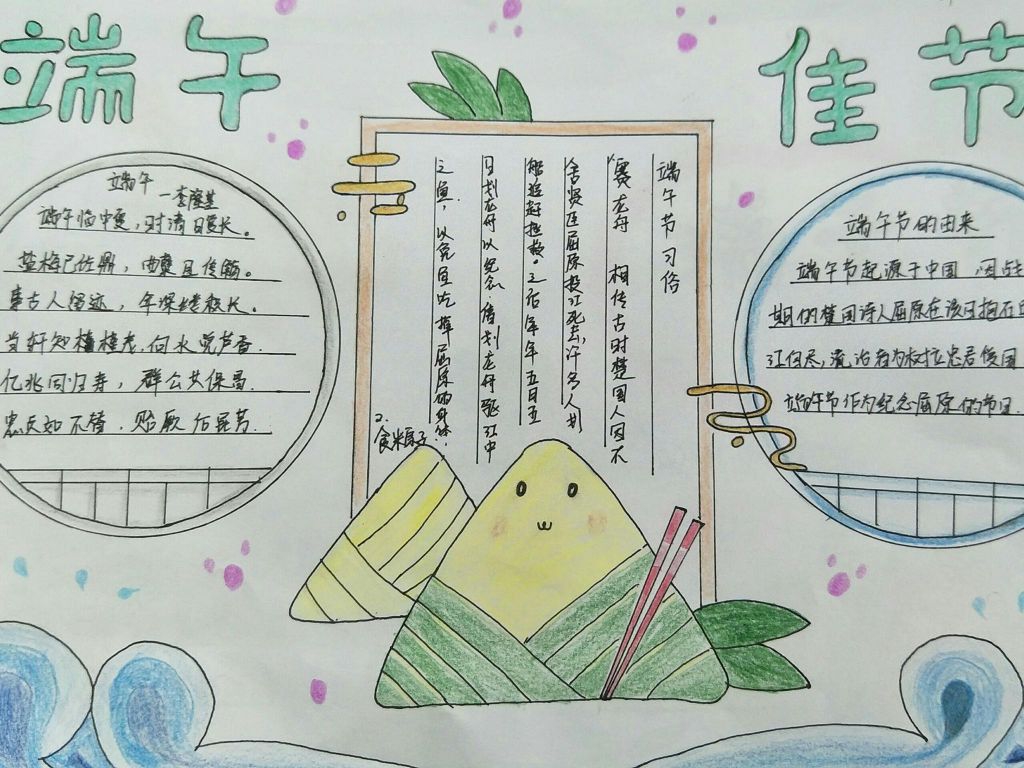 端午 佳节
端午
—李隆基
端午临中夏，时清日复长。
盐梅已佐鼎，曲糵且传觞。
事古人留迹，年深缕积长。
当轩知槿茂，向水觉芦香.
亿兆同归寿，群公共保昌.
忠贞如不替，贻厥后昆芳.
端午节习俗
赛龙舟 相传古时楚国人因不
舍贤臣屈原投江死去，许多人划
船追赶拯救。之后年年五日五
日划龙舟以纪念 借划龙舟驱江中
之鱼，以免鱼吃掉屈原的身体.
2.食粽子
端午节的由来
端午节起源于中国，因战
期的楚国诗人屈原在该日抱石
江自尽，统治者为树立忠君爱国
端午节作为纪念屈原的节日.